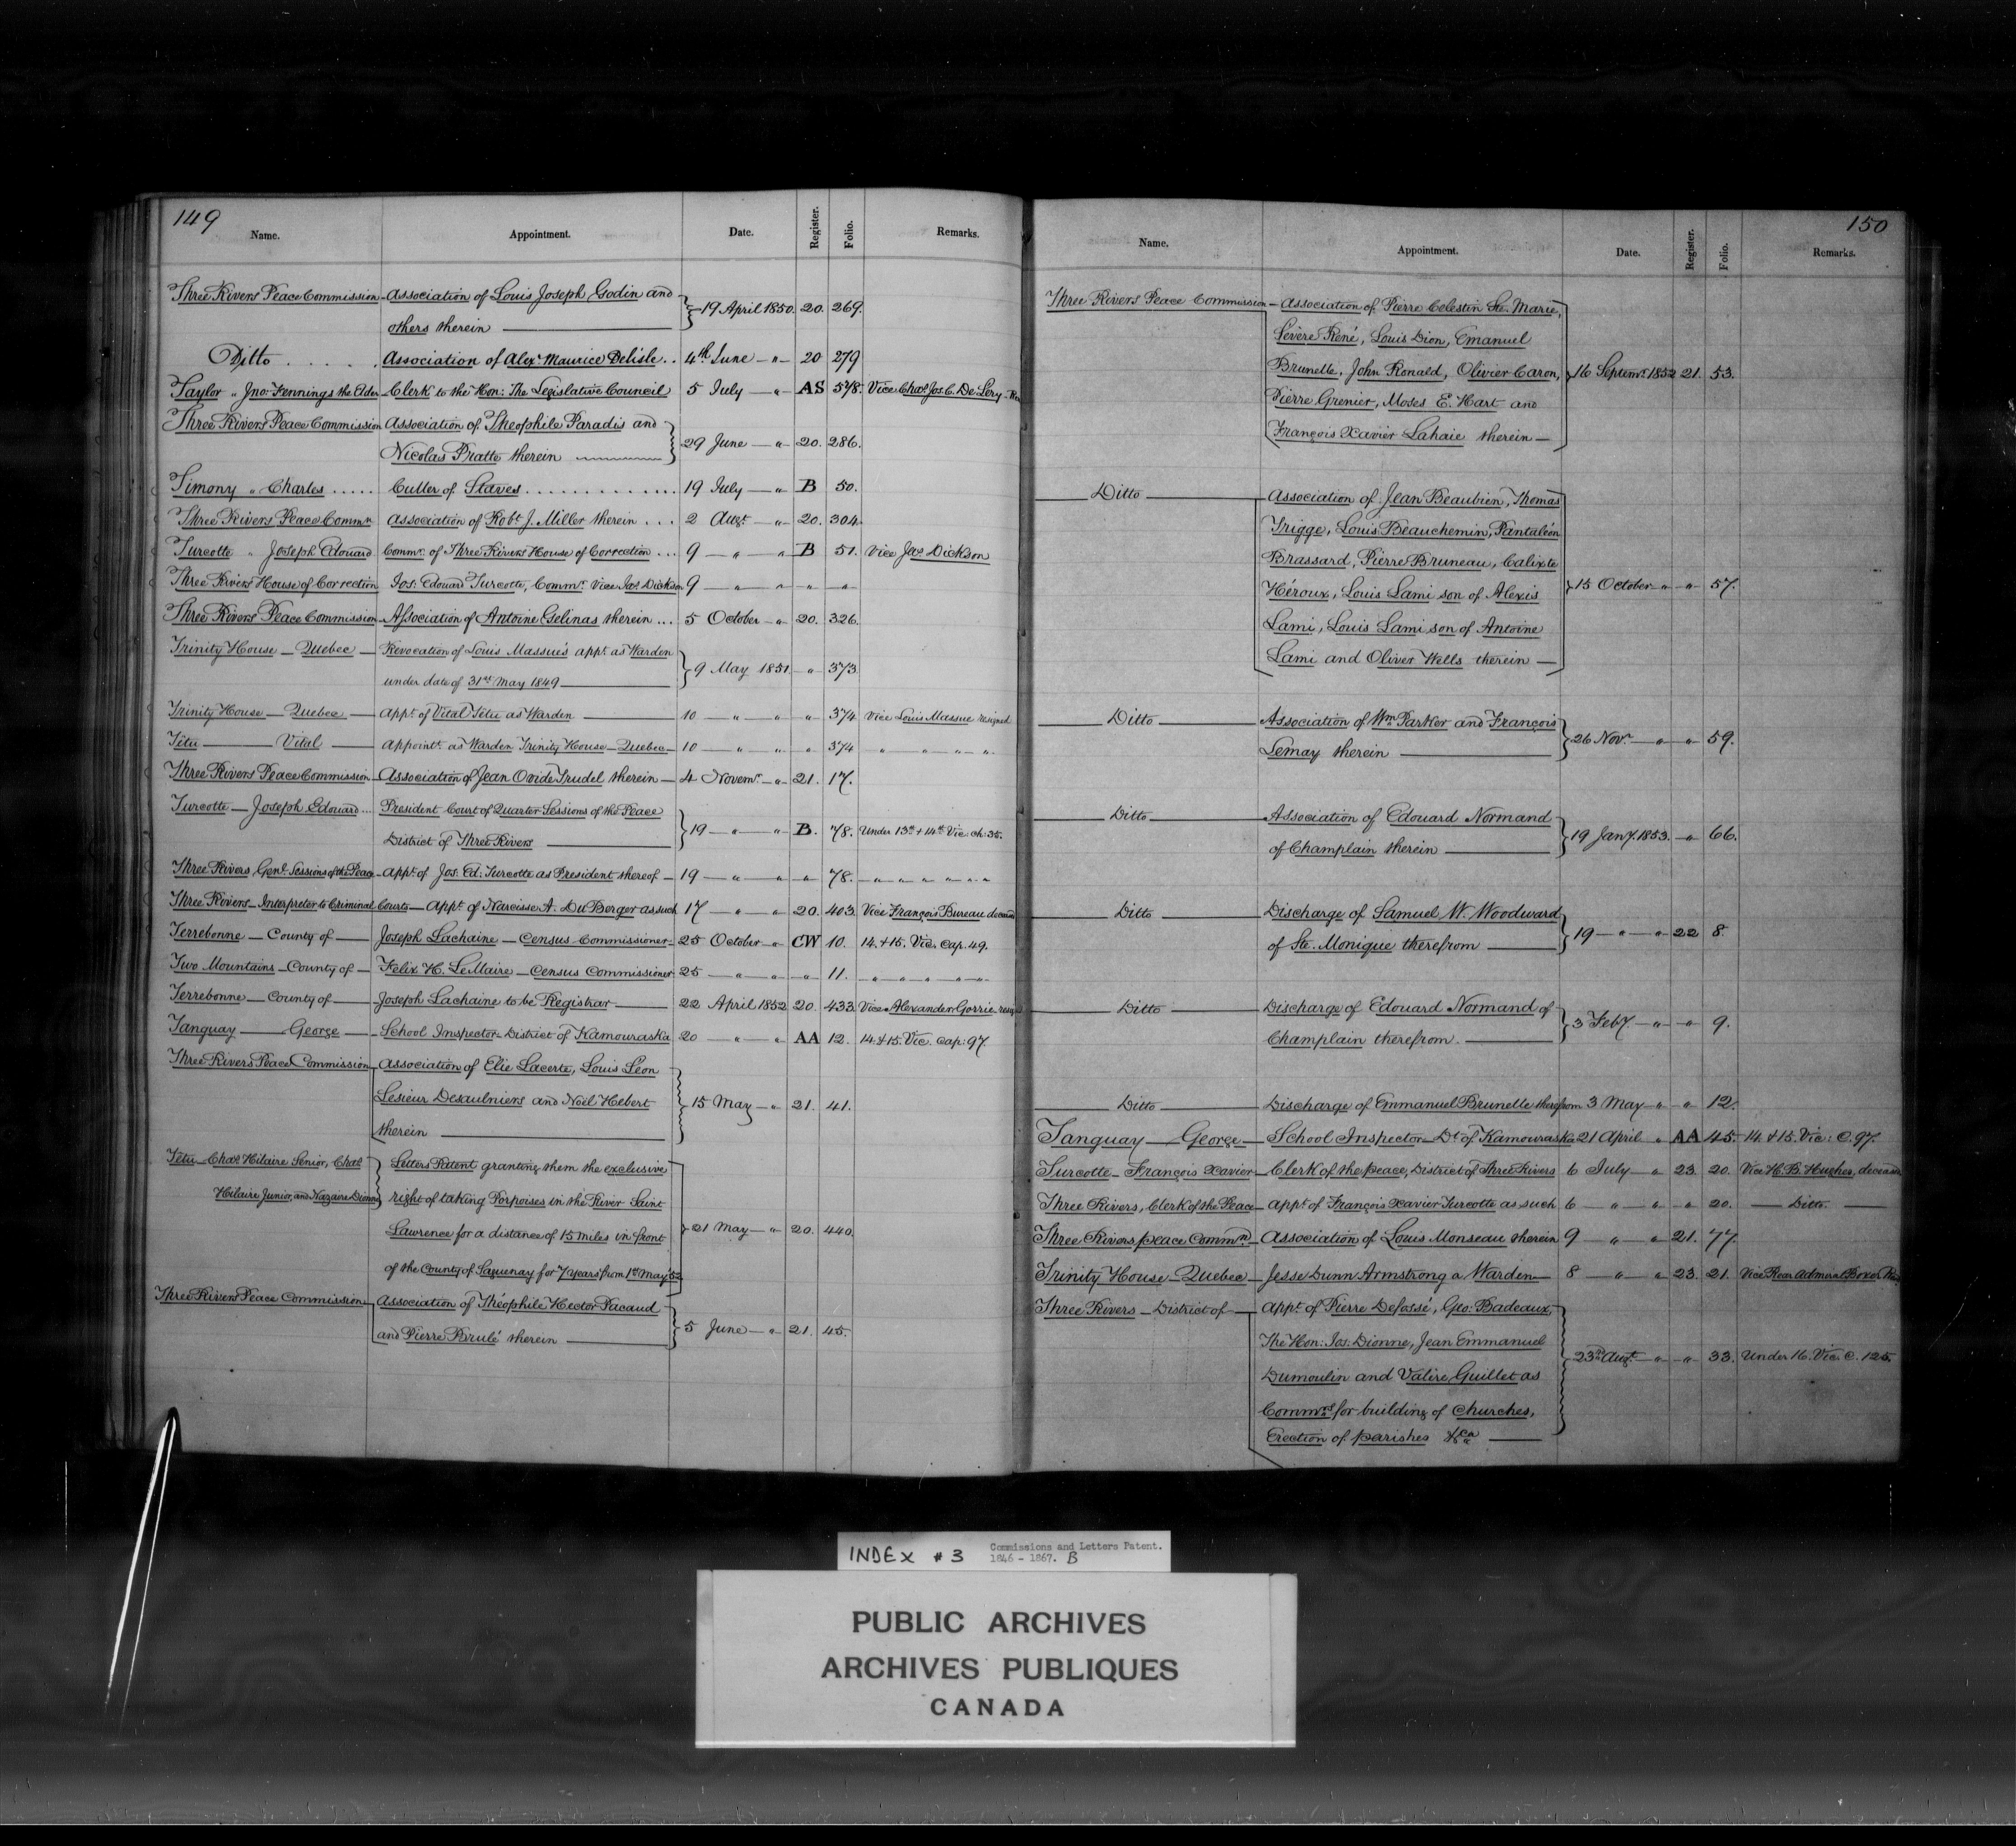 149
Name. Appointment. Date. Register. Folio. Remarks.
Three Rivers Peace Commission Association of Louis Joseph Godin and
others therein 19 April 1850. 20. 269.
Ditto Association of Alexr Maurice Delisle 4th June " 20 279
Taylor " Jno: Fennings the Elder Clerk to the Hon: The Legislative Council 5 July " AS 578. Vice Chas. Jos. C. De Léry
Three Rivers Peace Commission Association of Theophile Paradis and
Nicolas Pratte therein 29 June " 20. 286.
Timony " Charles Culler of Staves 19 July " B 50.
Three Rivers Peace Commn Association of Robt J. Miller therein 2 Augt " 20. 304.
Turcotte " Joseph Edouard Commr. of Three Rivers House of Correction 9 " " B 51. Vice Jas Dickson
Three Rivers House of Correction Jos: Edouard Turcotte, Commr. Vice Jas Dickson 9 " " " "
Three Rivers Peace Commission Association of Antoine Gelinas therein 5 October " 20. 326.
Trinity House Quebec Revocation of Louis Massue's appt. as Warden
under date of 31st May 1849 9 May 1851. " 373.
Trinity House Quebec Appt. of Vital Têtu as Warden 10 " " " 374. Vice Louis Massue resigned
Têtu Vital Appointt. as Warden Trinity House Quebec 10 " " " 374 " " " "
Three Rivers Peace Commission Association of Jean Ovide Trudel therein 4 Novemr. " 21. 17.
Turcotte Joseph Edouard President Court of Quarter Sessions of the Peace
District of Three Rivers 19 " " B. 78. Under 13th + 14th Vic: ch: 35.
Three Rivers, Genl. Sessions of the Peace Appt. of Jos. Ed: Turcotte as President thereof 19 " " " 78. " " " " " "
Three Rivers Interpreter to Criminal Courts Appt. of Narcisse A. Du Berger as such 17 " " 20. 403. Vice François Bureau deceased
Terrebonne County of Joseph Lachaine Census Commissioner 25 October " CW 10. 14. + 15. Vic. Cap. 49.
Two Mountains County of Felix H. LeMaire Census Commissioner 25 " " " 11. " " " " "
Terrebonne County of Joseph Lachaine to be Registrar 22 April 1852 20. 433. Vice Alexander Gorrie resigned
Tanguay George School Inspector District of Kamouraska 20 " " AA 12. 14. & 15. Vic. Cap: 97.
Three Rivers Peace Commission Association of Elie Lacerte, Louis Léon
Lesieur Desaulniers and Noël Hebert
therein 15 May " 21. 41.
Têtu Chas Hilaire Senior, Chas Letters Patent granting them the exclusive
Hilaire Junior, and Nazaire Dionne right of taking Porpoises in the River Saint
Lawrence for a distance of 15 miles in front 21 May " 20. 440.
of the County of Saguenay for 7 years from 1st May '52
Three Rivers Peace Commission Association of Théophile Hector Pacaud
and Pierre Brulé therein 5 June " 21. 45.
150
Name. Appointment. Date. Register. Folio. Remarks.
Three Rivers Peace Commission Association of Pierre Celestin Ste. Marie,
Sévère René, Louis Dion, Emanuel
Brunelle, John Ronald, Olivier Caron, 16 Septemr. 1852 21. 53.
Pierre Grenier, Moses E. Hart and
François Xavier Lahaie therein
Ditto Association of Jean Beaubien, Thomas
Trigge, Louis Beauchemin, Pantaléon
Brassard, Pierre Bruneau, Calixte
Héroux, Louis Lami son of Alexis 15 October " " 57.
Lami, Louis Lami son of Antoine
Lami and Oliver Wells therein
Ditto Association of Wm Parker and François
Lemay therein 26 Novr. " " 59.
Ditto Association of Edouard Normand
of Champlain therein 19 Jany. 1853. " 66.
Ditto Discharge of Samuel W. Woodward
of Ste. Monique therefrom 19 " " 22 8.
Ditto Discharge of Edouard Normand of
Champlain therefrom. 3 Feby. " " 9.
Ditto Discharge of Emmanuel Brunelle therefrom 3 May " " 12.
Tanguay George School Inspector Dt. of Kamouraska 21 April " AA 45. 14. & 15. Vic: C. 97.
Turcotte François Xavier Clerk of the Peace, District of Three Rivers 6 July " 23. 20. Vice H. B. Hughes, deceased
Three Rivers, Clerk of the Peace Appt. of François Xavier Turcotte as such 6 " " " 20. Ditto.
Three Rivers Peace Commn. Association of Louis Monseau therein 9 " " 21. 77.
Trinity House Quebec Jesse Dunn Armstrong a Warden 8 " " 23. 21. Vice Rear Admiral Boxer
Three Rivers District of Appt. of Pierre Defossé, Geo: Badeaux,
The Hon: Jos: Dionne, Jean Emmanuel
Dumoulin and Valère Guillet as 23rd Augt. " " 33. Under 16. Vic. C. 125.
Commrs for building of Churches,
Erection of parishes &ca
INDEX # 3 Commissions and Letters Patent.
1846 - 1867. B
PUBLIC ARCHIVES
ARCHIVES PUBLIQUES
CANADA